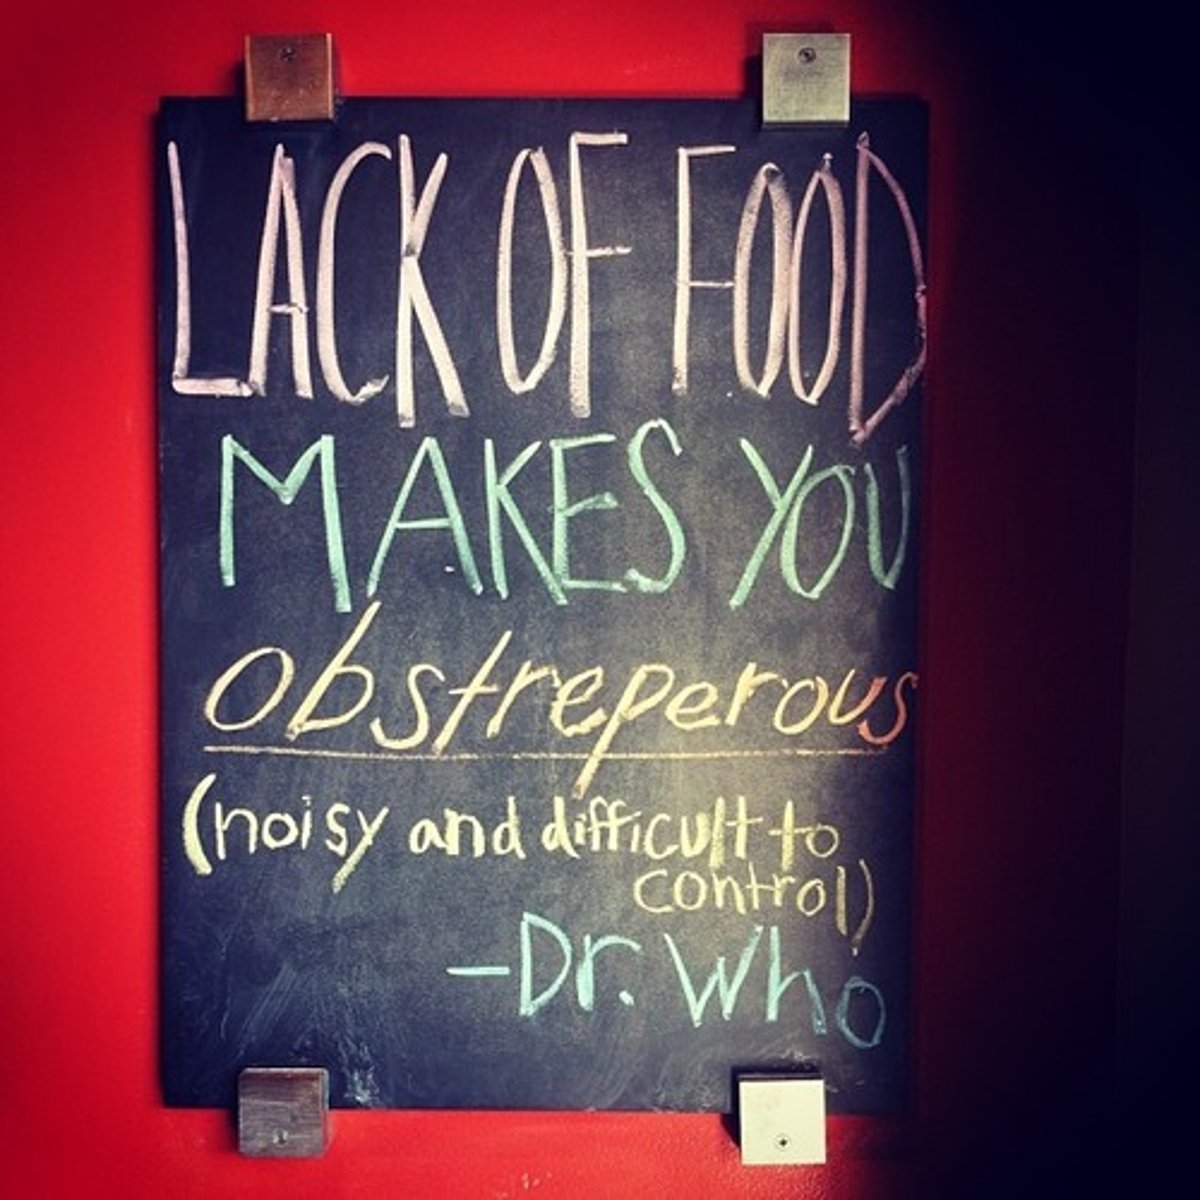 LACK OF FOOD
MAKES YOU
obstreperous
(noisy and difficult to
control)
-Dr. Who